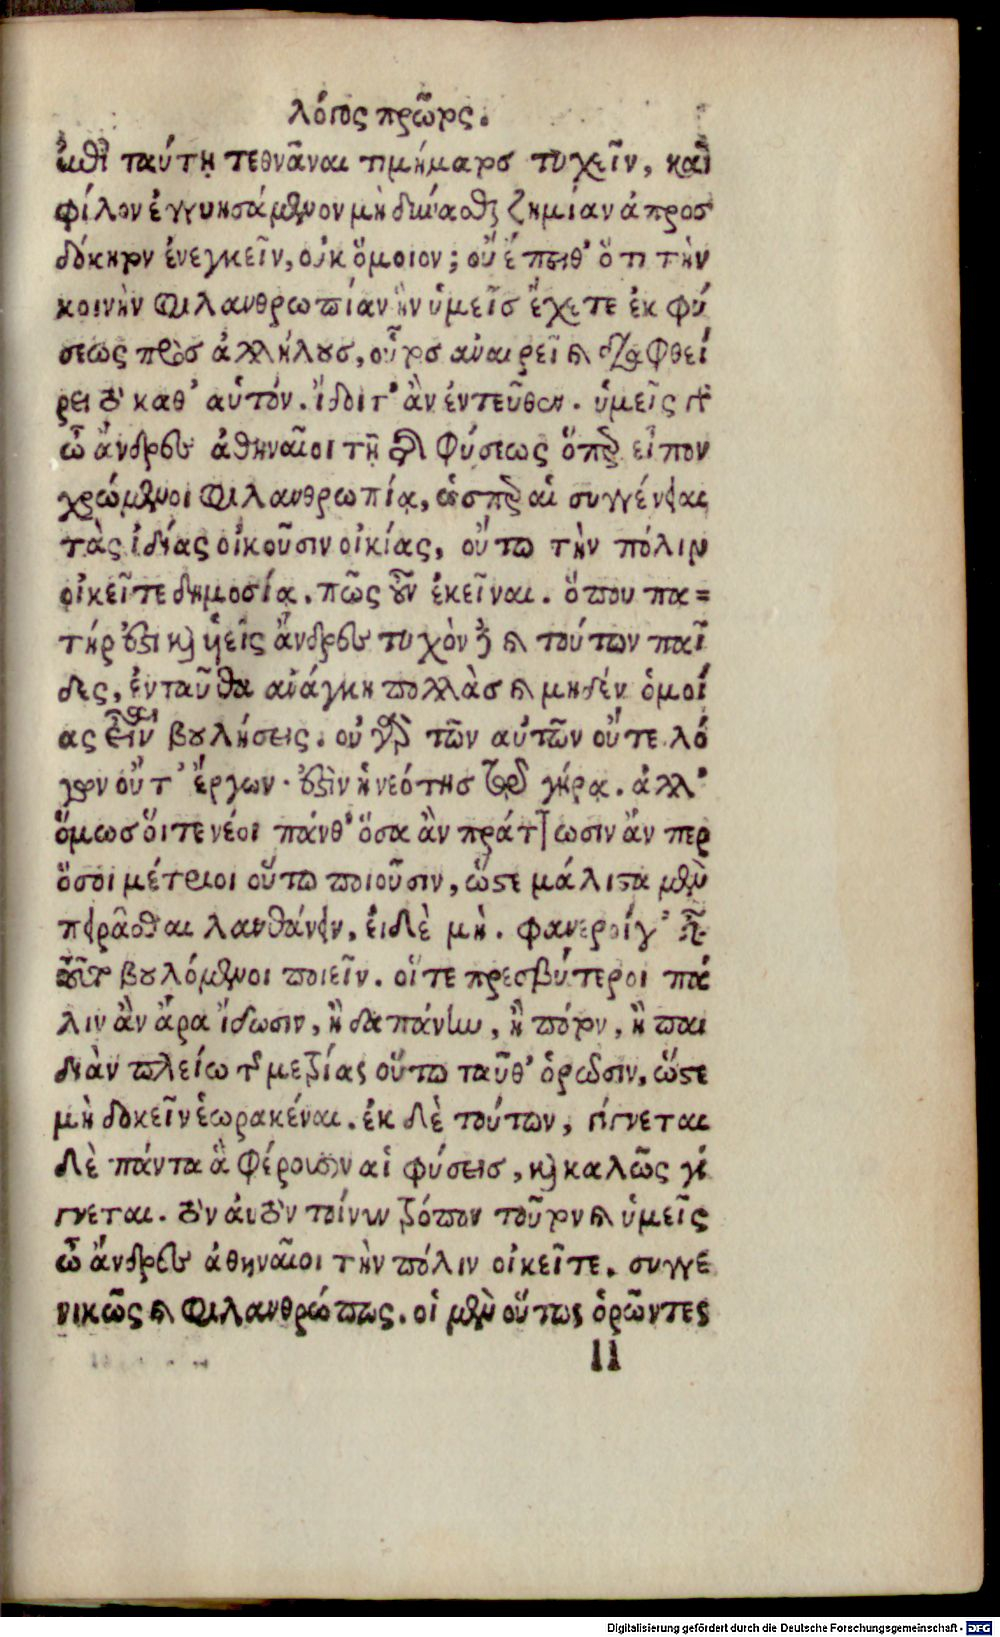 λόγος πρῶτος.
ἐπὶ ταύτῃ τεθνᾶναι τιμήματος τυχεῖν, καὶ
φίλον ἐγγυησάμενον μὴ δυνάσθαι ζημίαν ἀπροσ
δόκητον ἐνεγκεῖν, οὐκ ὅμοιον; οὔ ἔπειθ' ὅτι τὴν
κοινὴν φιλανθρωπίαν ἣν ὑμεῖς ἔχετε ἐκ φύ
σεως πρὸς ἀλλήλους, οὗτος ἀναιρεῖ καὶ διαφθεί
ρει τὸ καθ' αὑτόν. ἴδοιτ' ἂν ἐντεῦθεν. ὑμεῖς
ὦ ἄνδρες ἀθηναῖοι τῇ τῆς φύσεως ὅπερ εἶπον
χρώμενοι φιλανθρωπίᾳ, ὥσπερ αἱ συγγένειαι
τὰς ἰδίας οἰκοῦσιν οἰκίας, οὕτω τὴν πόλιν
οἰκεῖτε δημοσίᾳ. πῶς οὖν ἐκεῖναι. ὅπου πα=
τήρ ἐστι καὶ υἱεῖς ἄνδρες τυχὸν δὲ καὶ τούτων παῖ
δες, ἐνταῦθα ἀνάγκη πολλὰς καὶ μηδέν ὁμοί
ας εἶναι βουλήσεις. οὐ γὰρ τῶν αὐτῶν οὔτε λό
γων οὔτ' ἔργων ἐστὶν ἡ νεότης τῷ γήρᾳ. ἀλλ'
ὅμως οἵτε νέοι πάνθ' ὅσα ἂν πράττωσιν ἄν περ
ὅσοι μέτριοι οὕτω ποιοῦσιν, ὥστε μάλιστα μὲν
πειρᾶσθαι λανθάνειν, εἰ δὲ μὴ. φανεροίγ'
τοῦτο βουλόμενοι ποιεῖν. οἵτε πρεσβύτεροι πά
λιν ἂν ἄρα ἴδωσιν, ἢ δαπάνην, ἢ πότον, ἢ παι
διὰν πλείω τῆς μετρίας οὕτω ταῦθ' ὁρῶσιν, ὥστε
μὴ δοκεῖν ἑωρακέναι. ἐκ δὲ τούτων, γίγνεται
δὲ πάντα ἃ φέρουσιν αἱ φύσεις, καὶ καλῶς γί
γνεται. τὸν αὐτὸν τοίνυν τρόπον τοῦτον καὶ ὑμεῖς
ὦ ἄνδρες ἀθηναῖοι τὴν πόλιν οἰκεῖτε. συγγε
νικῶς καὶ φιλανθρώπως. οἱ μὲν οὕτως ὁρῶντες
11
Digitalisierung gefördert durch die Deutsche Forschungsgemeinschaft - DFG